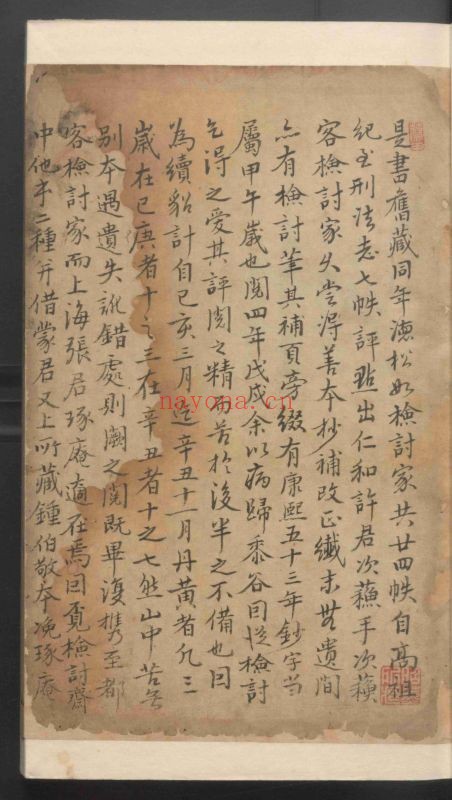 是書舊藏同年德松如檢討家共廿四帙自高祖
紀至刑法志七帙評點出仁和許君次蘓手次蘓
客檢討家久嘗淂善本抄補改正纖末無遺間
亦有檢討筆其補頁旁綴有康熙五十三年鈔字當
屬甲午歲也閱四年戊戌余以病歸黍谷回從檢討
乞淂之爱其評閱之精而苦於後半之不備也曰
為續貂計自己亥三月迄辛丑十一月丹黃者凡三
歲在己庚者十之三在辛丑者十之七然山中苦無
别本遇遺失訛錯處則闕之閱既畢復携至都
客檢討家而上海張君琢庵適在焉回覔檢討齋
中他本二種并借蒙君又上所藏鍾伯敬本凂琢庵
nayona.cn